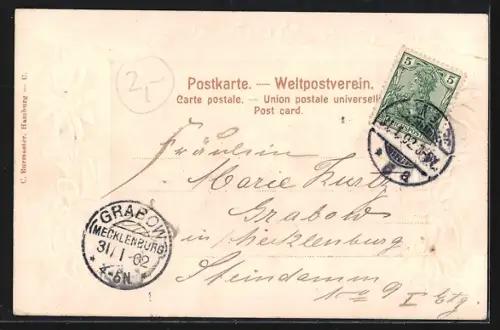 2,-
Postkarte. — Weltpostverein.
Carte postale. — Union postale universelle
Post card.
C. Burmester, Hamburg — U.
5 5
31.1.02
* 5 a
Fräulein
Marie Kurtz
Grabow
in/Mecklenburg
Steindamm
No 9 I Etg.
GRABOW
(MECKLENBURG)
31/1 02
* 4-6N *